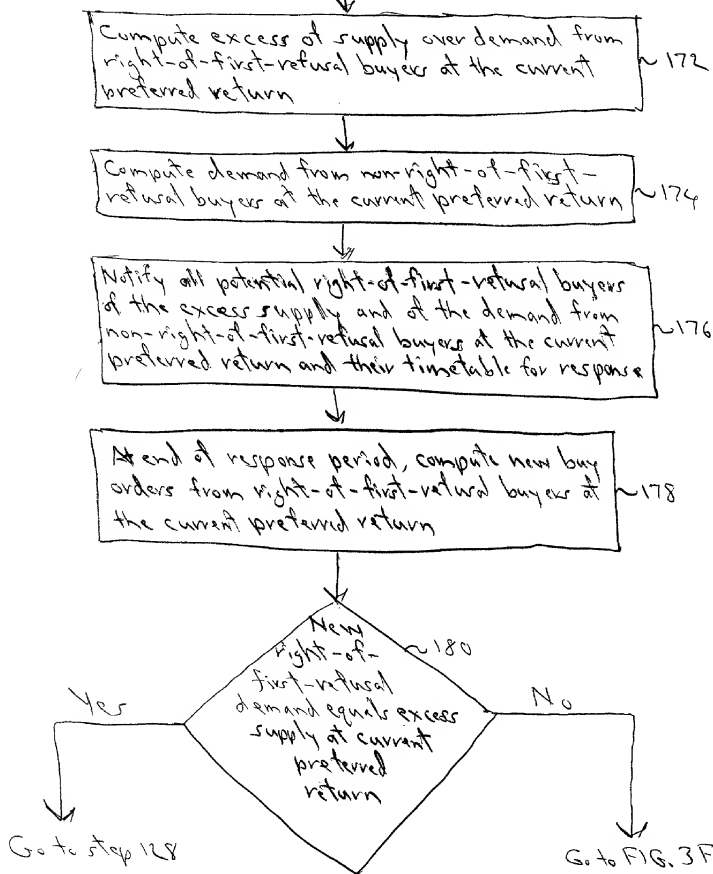 Compute excess of supply over demand from
right-of-first-refusal buyers at the current
preferred return
172
Compute demand from non-right-of-first-
refusal buyers at the current preferred return
174
Notify all potential right-of-first-refusal buyers
of the excess supply and of the demand from
non-right-of-first-refusal buyers at the current
preferred return and their timetable for response
176
At end of response period, compute new buy
orders from right-of-first-refusal buyers at
the current preferred return
178
New
right-of-
first-refusal
demand equals excess
supply at current
preferred
return
180
Yes
No
Go to step 128
Go to FIG. 3F